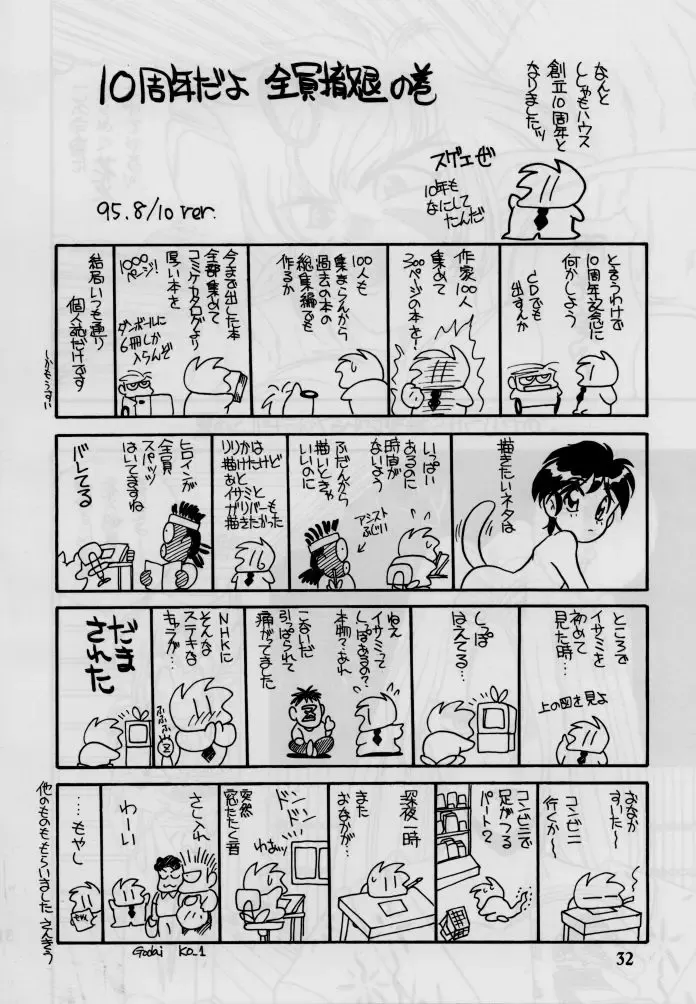 10周年だよ 全員撤退の巻
95.8/10 ver.
なんと
ししゃもハウス
創立10周年と
なりましたッ
スゲェぜ
10年も
なにして
たんだ
と言うわけで
10周年記念に
何かしよう
CDでも
出すんか
作家100人
集めて
300ページの本を!
100人も
集まらんから
過去の本の
総集編でも
作るか
今まで出した本
全部集めて
コミケカタログより
厚い本を
1000ページ!
ダンボールに
6冊しか
入らんぞ
結局いつも通り
個人誌だけです
しかもうすい
描きたいネタは
いっぱい
あるのに
時間が
ないよう
ふだんから
描いときゃ
いいのに
アシスト
ふじい
りりかは
描けたけど
あと
イサミと
ガリバーも
描きたかった
ヒロインが
全員
スパッツ
はいてますね
バレてる
ところで
イサミを
初めて
見た時…
上の図を見よ
しっぽ
はえてる…
ねえ
イサミって
しっぽあるの?
本物?あれ
こないだ
引っぱられて
痛がってました
NHKに
そんな
ステキな
キャラが…
ふふふ
だま
された
おなか
すいた〜
コンビニ
行くか〜
コンビニで
足がつる
パート2
深夜一時
また
おなかが…
ドンドン
突然
窓たたく音
わぁッ
さしいれ
わーい
……もやし
他のものももらいました さんきう
Godai Ko_1
32